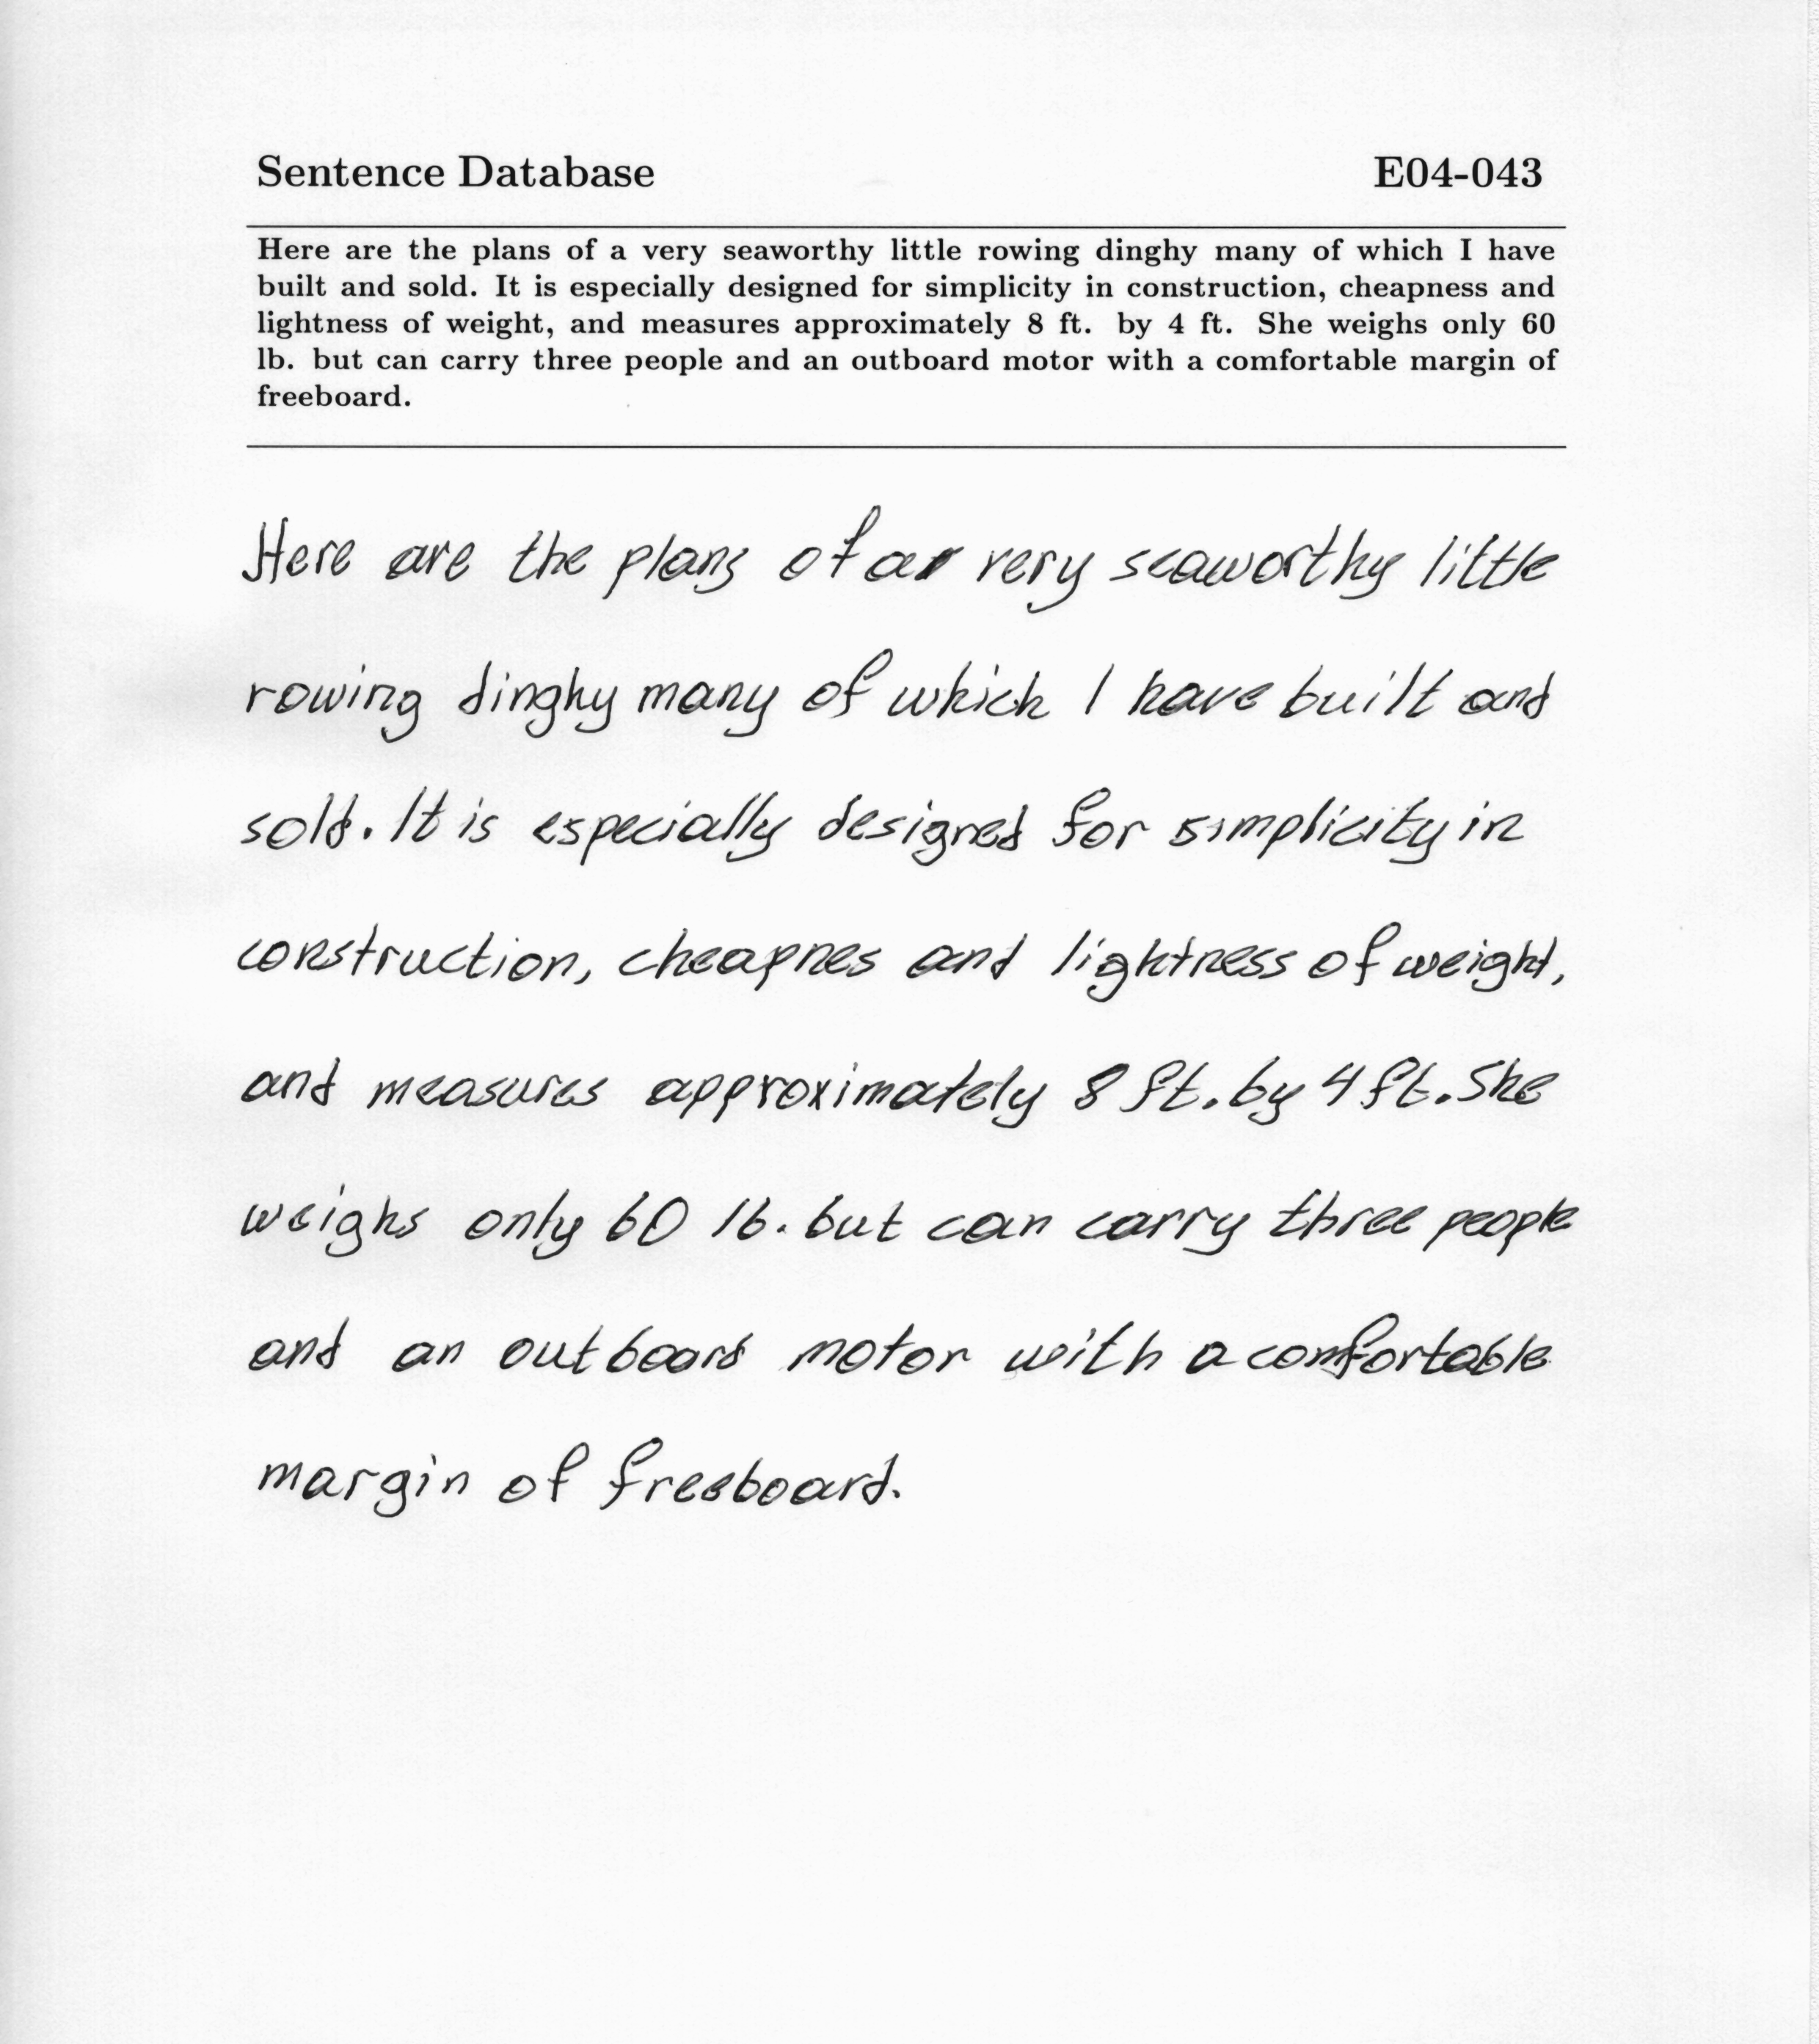 Sentence Database E04-043
Here are the plans of a very seaworthy little rowing dinghy many of which I have
built and sold. It is especially designed for simplicity in construction, cheapness and
lightness of weight, and measures approximately 8 ft. by 4 ft. She weighs only 60
lb. but can carry three people and an outboard motor with a comfortable margin of
freeboard.
Here are the plans of a very seaworthy little
rowing dinghy many of which I have built and
sold. It is especially designed for simplicity in
construction, cheapnes and lightness of weight,
and measures approximately 8 ft. by 4 ft. She
weighs only 60 lb. but can carry three people
and an outboard motor with a comfortable
margin of freeboard.